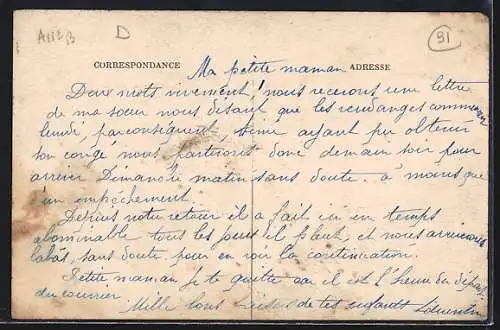 A112 B D 91
CORRESPONDANCE ADRESSE
Ma petite maman
Deux mots vivement ! nous recevons une lettre
de ma sœur nous disant que les vendanges commencent
lundi, par conséquent, ayant pu obtenir
son congé nous partirons donc demain soir pour
arriver Dimanche matin sans doute. à moins que
d'un empêchement.
Depuis notre retour il a fait ici un temps
abominable tous les jours il pleut, et nous arriverons
labas, sans doute pour en voir la continuation.
Petite maman je te quitte car il est l'heure du départ
du courrier.
Mille bons baisers de tes enfants